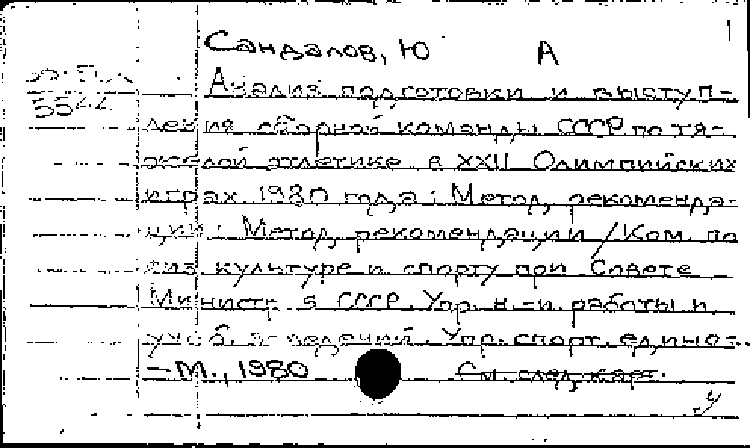 1
Сандалов, Ю А
Анализ подготовки и выступ-
5544
ления сборной команды СССР по тя-
желой атлетике в XXII Олимпийских
играх 1980 года: Метод, рекоменда-
ции: Метод, рекомендации / Ком. по
физ культуре и спорту при Совете
Министр в СССР. Упр. н.-и. работы и
учеб. з-ведений. Упр. спорт. единоб.
- М., 1980 См. след. карт.
у